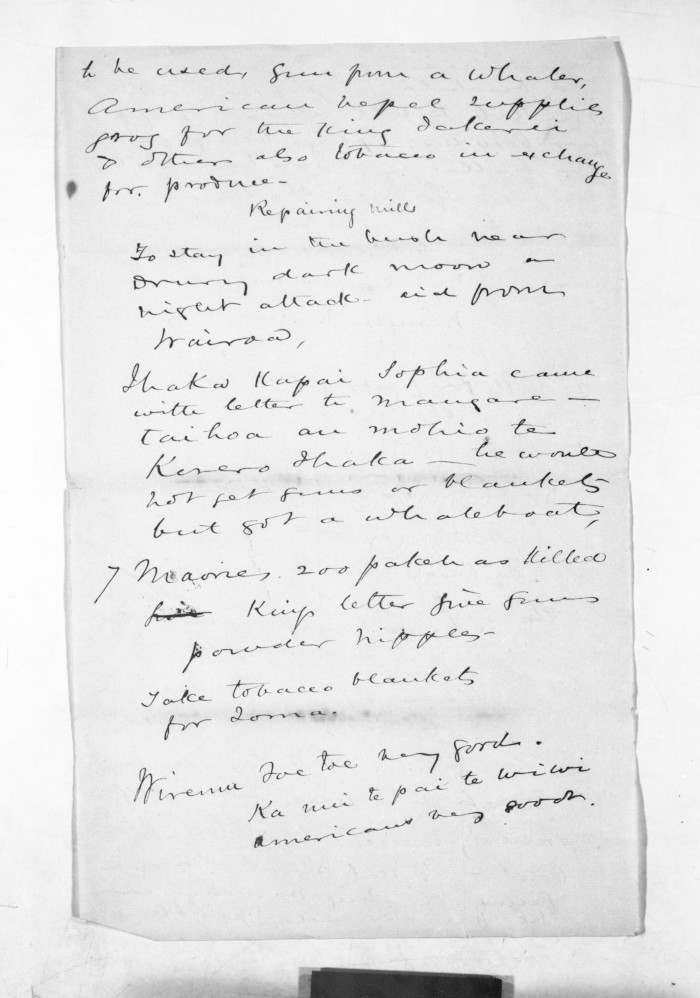 to be used, gun from a whaler,
American vessel supplies
grog for the King Takerei
& others also tobacco in exchange
for. produce -
Repairing mills
To stay in the bush near
Drury dark moon a
night attack - aid from
Wairoa,
Ihaka Kapai Sophia came
with letter to Mangare -
taihoa au mohio te
Korero Ihaka - he would
not get guns or blankets
but got a whaleboat,
7 Maories. 200 pakehas killed
King letter give guns
powder nipples -
Take tobacco blankets
for
Wiremu Toe toe very good.
Ka nui te pai te wiwi
Americans very good.